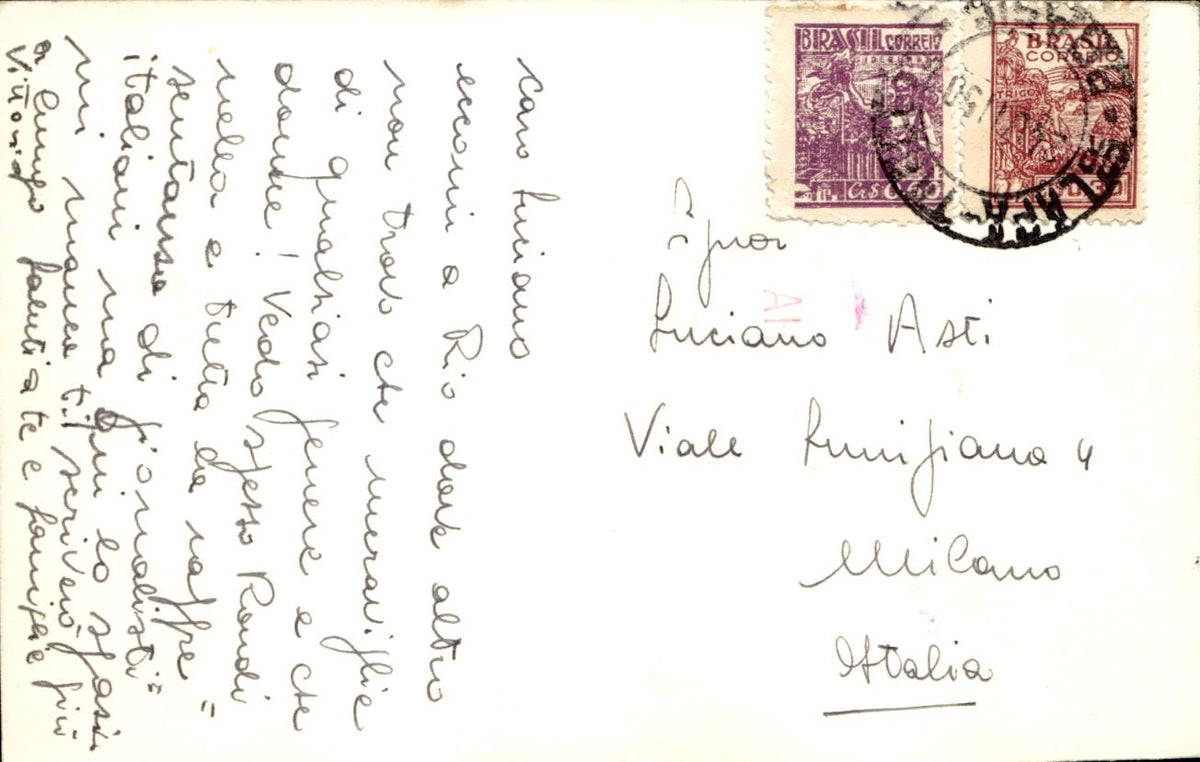 Caro Luciano
eccomi a Rio dove altro
non trovo che meraviglie
di qualsiasi genere e che
donne! Vedo spesso Rondi
nella e tutta la rappre=
sentanza di giornalisti
italiani ma qui lo spazio
mi manca ti scriverò più
a lungo saluti a te e famiglia
Vittorio
BRASIL CORREIO
Cr$ 0,60
BRASIL
CORREIO
TRIGO
Signor
Luciano Asti
Viale Lunigiana 4
Milano
Italia